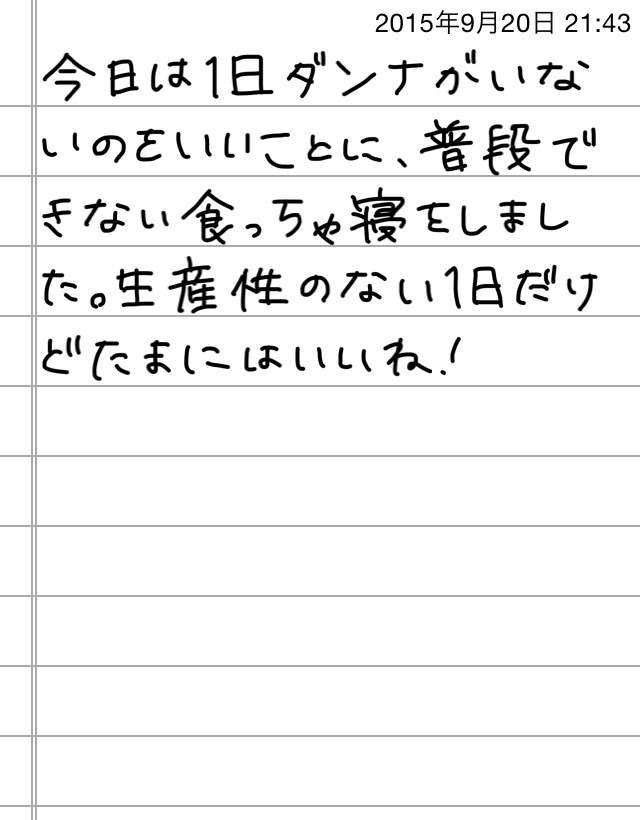 2015年9月20日 21:43
今日は1日ダンナがいな
いのをいいことに、普段で
きない食っちゃ寝をしまし
た。生産性のない1日だけ
どたまにはいいね!